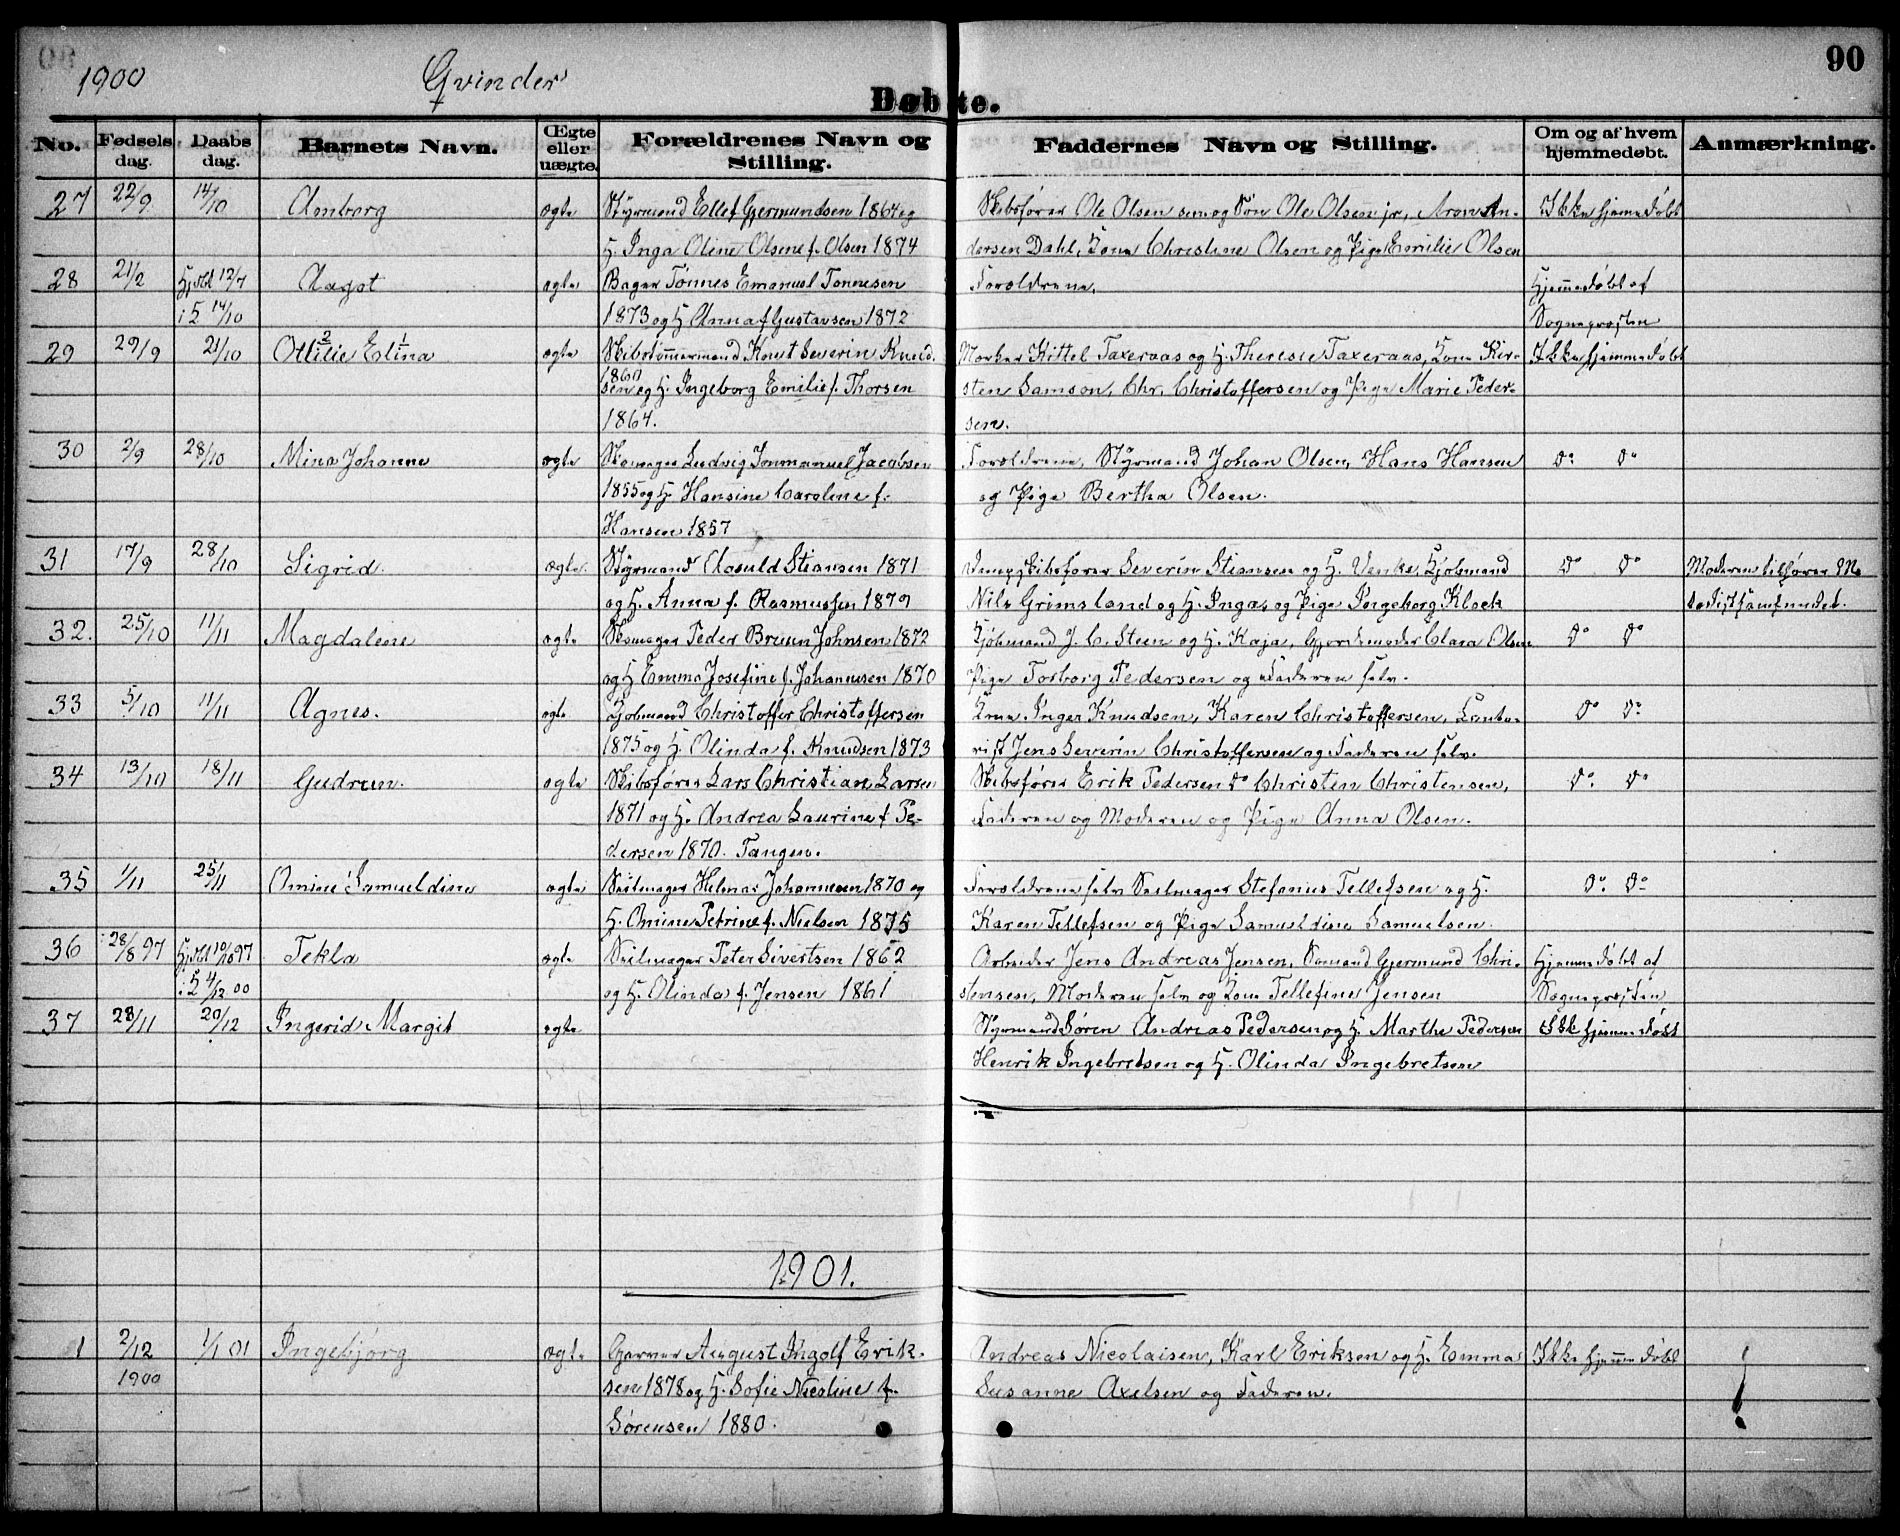 90
1900 Qvinder
Døbte.
No. Fødsels dag. Daabs dag. Barnets Navn. Ægte eller uægte. Forældrenes Navn og Stilling. Faddernes Navn og Stilling. Om og af hvem hjemmedøbt. Anmærkning.
27 22/9 14/10 Amborg ægte Styrmand Ellef Gjermundsen 1864 og Skibsfører Ole Olsen sen og Søn Ole Olsen jr, Aron An- Ikke hjemmedøbt
H. Inga Oline Olsene f. Olsen 1874 dersen Dahl, Kone Christine Olsen og Pige Emilie Olsen
28 21/2 Hjdbt 12/7 Aagot ægte Bager Tønnes Emanuel Tønnesen Forældrene. Hjemmedøbt af
i K 14/10 1873 og H Anna f Gustavsen 1872 Sogneprosten
29 29/9 21/10 Otilie 2 Elina 1 ægte Skibstømmermand Knut Severin Knud- Mosker Kittel Taxeraas og H. Theresie Taxeraas, Kone Kir- Ikke hjemmedøbt
1860
sen og H. Ingeborg Emilie f. Thorsen sten Samson, Chr. Christoffersen og Pige Marie Peder-
1864. sen.
30 2/9 28/10 Mina Johanne ægte Skomager Ludvig Immanuel Jacobsen Forældrene, Styrmand Johan Olsen, Hans Hansen Do Do
1855 og H. Hansine Caroline f. og Pige Bertha Olsen.
Hansen 1857
31 17/9 28/10 Sigrid. ægte. Styrmand Aasuld Stiansen 1871 Dampskibsfører Severin Stiansen og H. Venke, Kjøbmand Do Do Moderen tilhører Me-
og H. Anna f. Rasmussen 1879 Nils Grimsland og H. Inga, og Pige Ingeborg Klock todistsamfundet.
32. 25/10 11/11 Magdalene ægte Skomager Peder Bruun Johnsen 1872 Kjøbmand J. C. Steen og H. Kaja, Gjordemoder Clara Olsen Do Do
og H Emma Josefine f. Johannesen 1870 Pige Torborg Pedersen og Faderen selv.
33 5/10 11/11 Agnes. ægte Kjøbmand Christoffer Christoffersen Kone Inger Knudsen, Karen Christoffersen, Konto- Do Do
1875 og H. Olinda f. Knudsen 1873 rist Jens Severin Christoffersen og Faderen selv.
34 13/10 18/11 Gudrun. ægte Skibsfører Lars Christian Larsen Skibsfører Erik Pedersen Do Christen Christensen, Do Do
1871 og H. Andrea Laurine f Pe- Faderen og Moderen og Pige Anna Olsen.
dersen 1870. Tangen.
35 1/11 25/11 Omine Samueldine ægte Seilmager Helmer Johannesen 1870 og Forældrene selv Seilmager Stefanus Tellefsen og H. Do Do
H. Omine Petrine f. Nielsen 1875 Karen Tellefsen og Pige Samueldine Samuelsen.
36 28/8 97 Hjdbt 10/10 97 Tekla ægte Seilmager Peter Sivertsen 1862 Arbeider Jens Andreas Jensen, Sømand Gjermund Chri- Hjemmedøbt af
i K 4/12 00 og H. Olinda f. Jensen 1861 stensen, Moderen selv og Kone Tellefine Jensen Sogneprosten
37 28/11 20/12 Ingerid Margit ægte Styrmand Søren Andreas Pedersen og H. Marthe Pedersen Ikke hjemmedøbt
Henrik Ingebretsen og H. Olinda Ingebretsen
1901.
1 2/12 1/1 01 Ingebjørg ægte Garver August Ingolf Erik- Andreas Nicolaisen, Karl Eriksen og H. Emma Ikke hjemmedøbt
1900 sen 1878 og H. Sofie Nicoline f. Susanne Axelsen og Faderen.
Sørensen 1880.